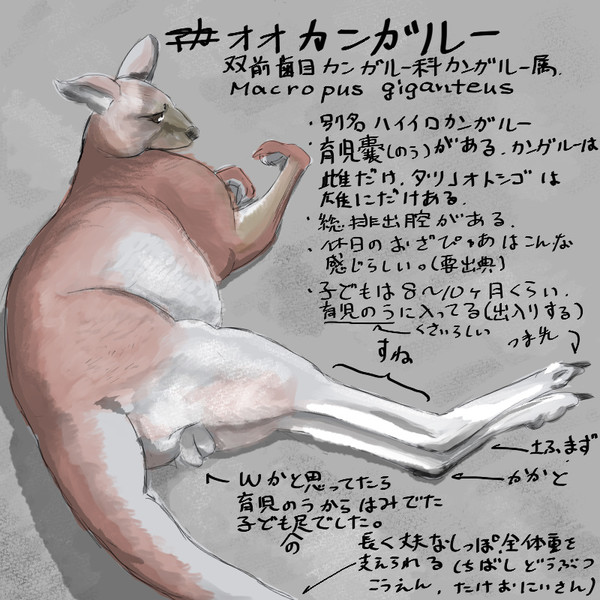 #オオカンガルー
双前歯目カンガルー科カンガルー属.
Macropus giganteus
・別名 ハイイロカンガルー
・育児嚢(のう)がある.カンガルーは
雌だけ,タツノオトシゴは
雄にだけある.
・総排出腔がある.
・休日のおざぴゅあはこんな
感じらしい。(要出典)
・子どもは8~10ヶ月くらい.
育児のうに入ってる(出入りする)
くさいらしい
つま先
すね
土ふまず
かかと
Wかと思ってたら
育児のうからはみでた
子どもの足でした。
長く丈夫なしっぽ.全体重を
支えられる(ちばしどうぶつ
こうえん,たけおにいさん)